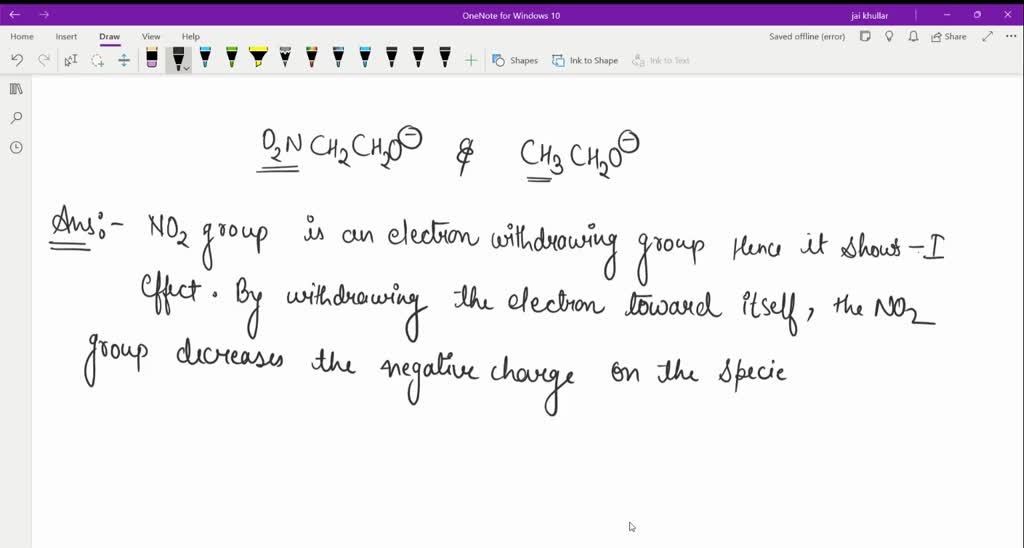 OneNote for Windows 10
jai khullar
Home Insert Draw View Help
Saved offline (error)
Share
Shapes
Ink to Shape
Ink to Text
O₂NCH₂CH₂O⊖ & CH₃CH₂O⊖
Ans:- NO₂ group is an electron withdrawing group Hence it shows -I
Effect. By withdrawing the electron toward itself, the NO₂
group decreases the negative charge on the specie